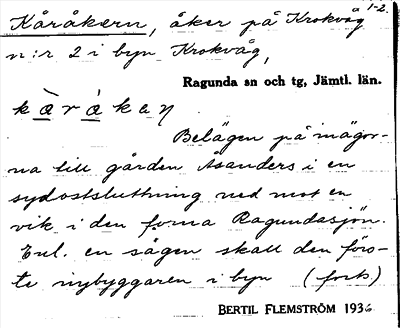 1-2.
Kåråkern, åker på Krokvåg
n:r 2 i byn Krokvåg,
Ragunda sn och tg, Jämtl. län.
Belägen på inägor-
na till gården Åsanders i en
sydostsluttning ned mot en
vik i den forna Ragundasjön.
Enl. en sägen skall den förs-
te nybyggaren i byn (forts)
BERTIL FLEMSTRÖM 1936